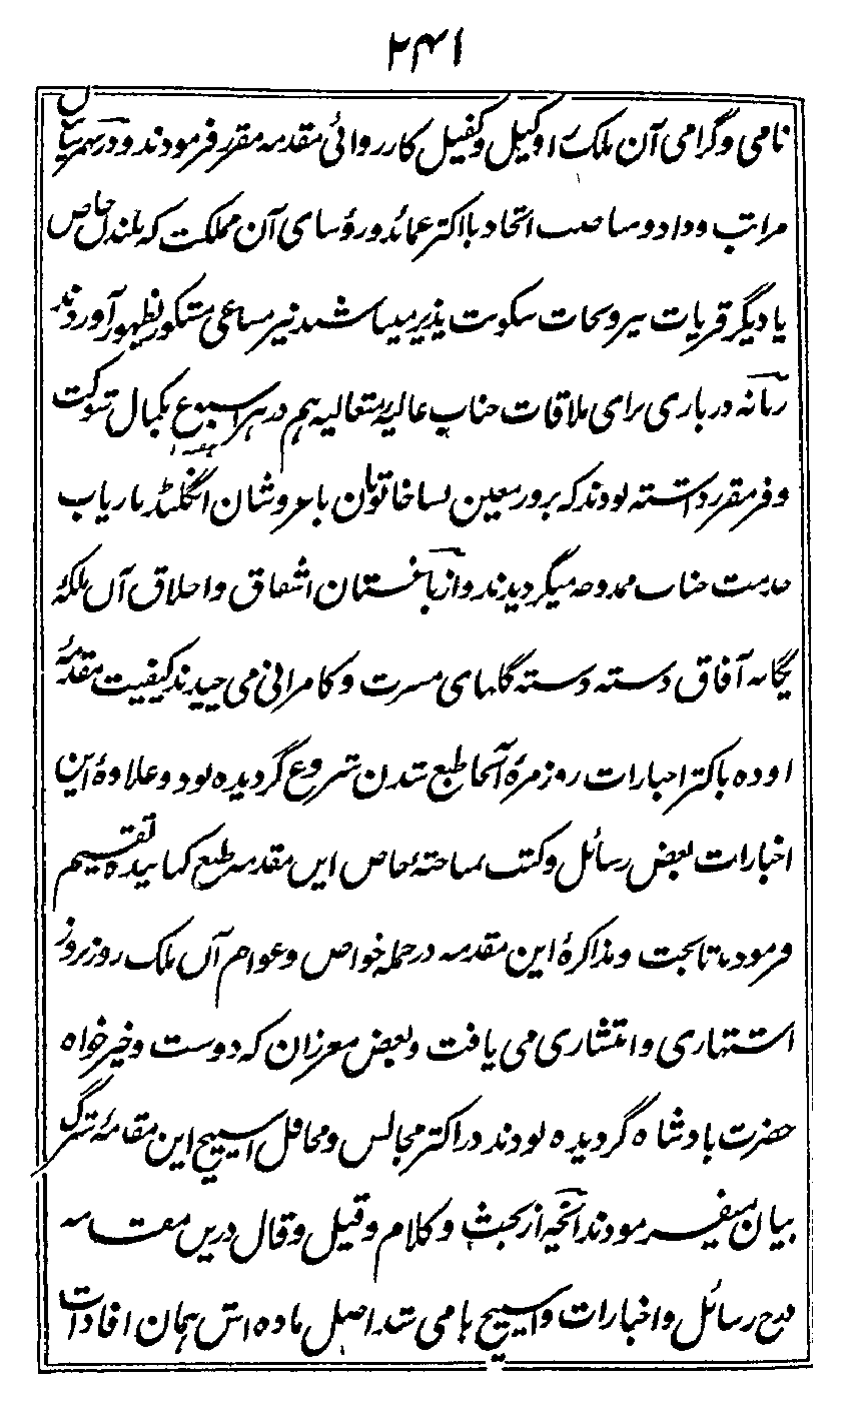 ۲۴۱
نامی و گرامی آن ملک را وکیل و کفیل کارروائی مقدمه مقرر فرمودند و در تمهید
مراتب و داد و مناصب اتحاد با اکثر عمائد و رؤسای آن مملکت که بلندن خاص
یا دیگر قریات بیروجات سکونت پذیر میباشند نیز مساعی مشکور بظهور آوردند
زنانه درباری برای ملاقات جناب عالیهٔ متعالیه هم در هر اسبوع بکمال شوکت
و فر مقرر داشته بودند که بروز معین بسا خاتونان با عز و شان انگلند باریاب
خدمت جناب ممدوحه میگردیدند و از باغستان اشفاق و اخلاق آن ملکهٔ
یگانه آفاق دسته دسته گلهای مسرت و کامرانی می چیدند کیفیت مقدمهٔ
اوده باکثر اخبارات روزمرهٔ آنجا طبع شدن شروع گردیده بود و علاوهٔ این
اخبارات بعض رسائل و کتب مباحثهٔ خاص این مقدمه طبع کنانیده تقسیم
فرمودند تا بحث و مذاکرهٔ این مقدمه در جمله خواص و عوام آن ملک روز بروز
اشتهاری و انتشاری می یافت و بعض معززان که دوست و خیر خواه
حضرت بادشاه گردیده بودند در اکثر مجالس و محافل اسپیچ این مقدمهٔ سترگ
بیان میفرمودند آنچه از بحث و کلام و قیل و قال درین مقدمه
درج رسائل و اخبارات و اسپیچ ها می شد اصل ماده اش همان افادات